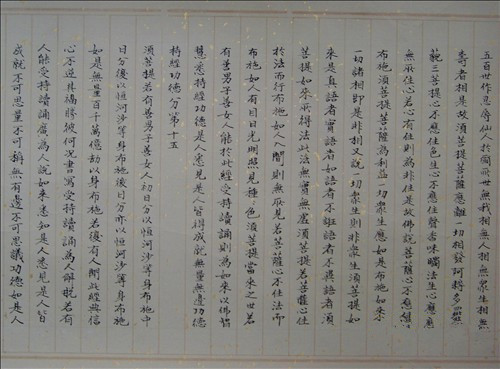 五百世作忍辱仙人於爾所世無我相無人相無眾生相無
壽者相是故須菩提菩薩應離一切相發阿耨多羅三
藐三菩提心不應住色生心不應住聲香味觸法生心應生
無所住心若心有住則為非住是故佛說菩薩心不應住色
布施須菩提菩薩為利益一切眾生應如是布施如來
一切諸相即是非相又說一切眾生則非眾生須菩提如
來是真語者實語者如語者不誑語者不異語者須
菩提如來所得法此法無實無虛須菩提若菩薩心住
於法而行布施如人入闇則無所見若菩薩心不住法而
布施如人有目日光明照見種種色須菩提當來之世若
有善男子善女人能於此經受持讀誦則為如來以佛智
慧悉持經功德是人悉見是人皆得成就無量無邊功德
持經功德分第十五
須菩提若有善男子善女人初日分以恒河沙等身布施中
日分復以恒河沙等身布施後日分亦以恒河沙等身布施
如是無量百千萬億劫以身布施若復有人聞此經典信
心不逆其福勝彼何況書寫受持讀誦為人解說若有
人能受持讀誦廣為人說如來悉知是人悉見是人皆
成就不可思量不可稱無有邊不可思議功德如是人